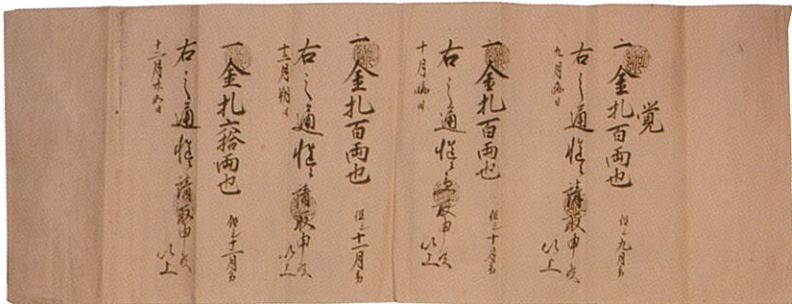 覚
一金札百両也 但し九月分
右之通慥ニ請取申候 以上
九月晦日
一金札百両也 但し十月分
右之通慥ニ受取申候 以上
十月晦日
一金札百両也 但し十一月分
右之通慥ニ請取申候 以上
十二月朔日
一金札六拾両也 但し十二月分
右之通慥ニ請取申候 以上
十二月